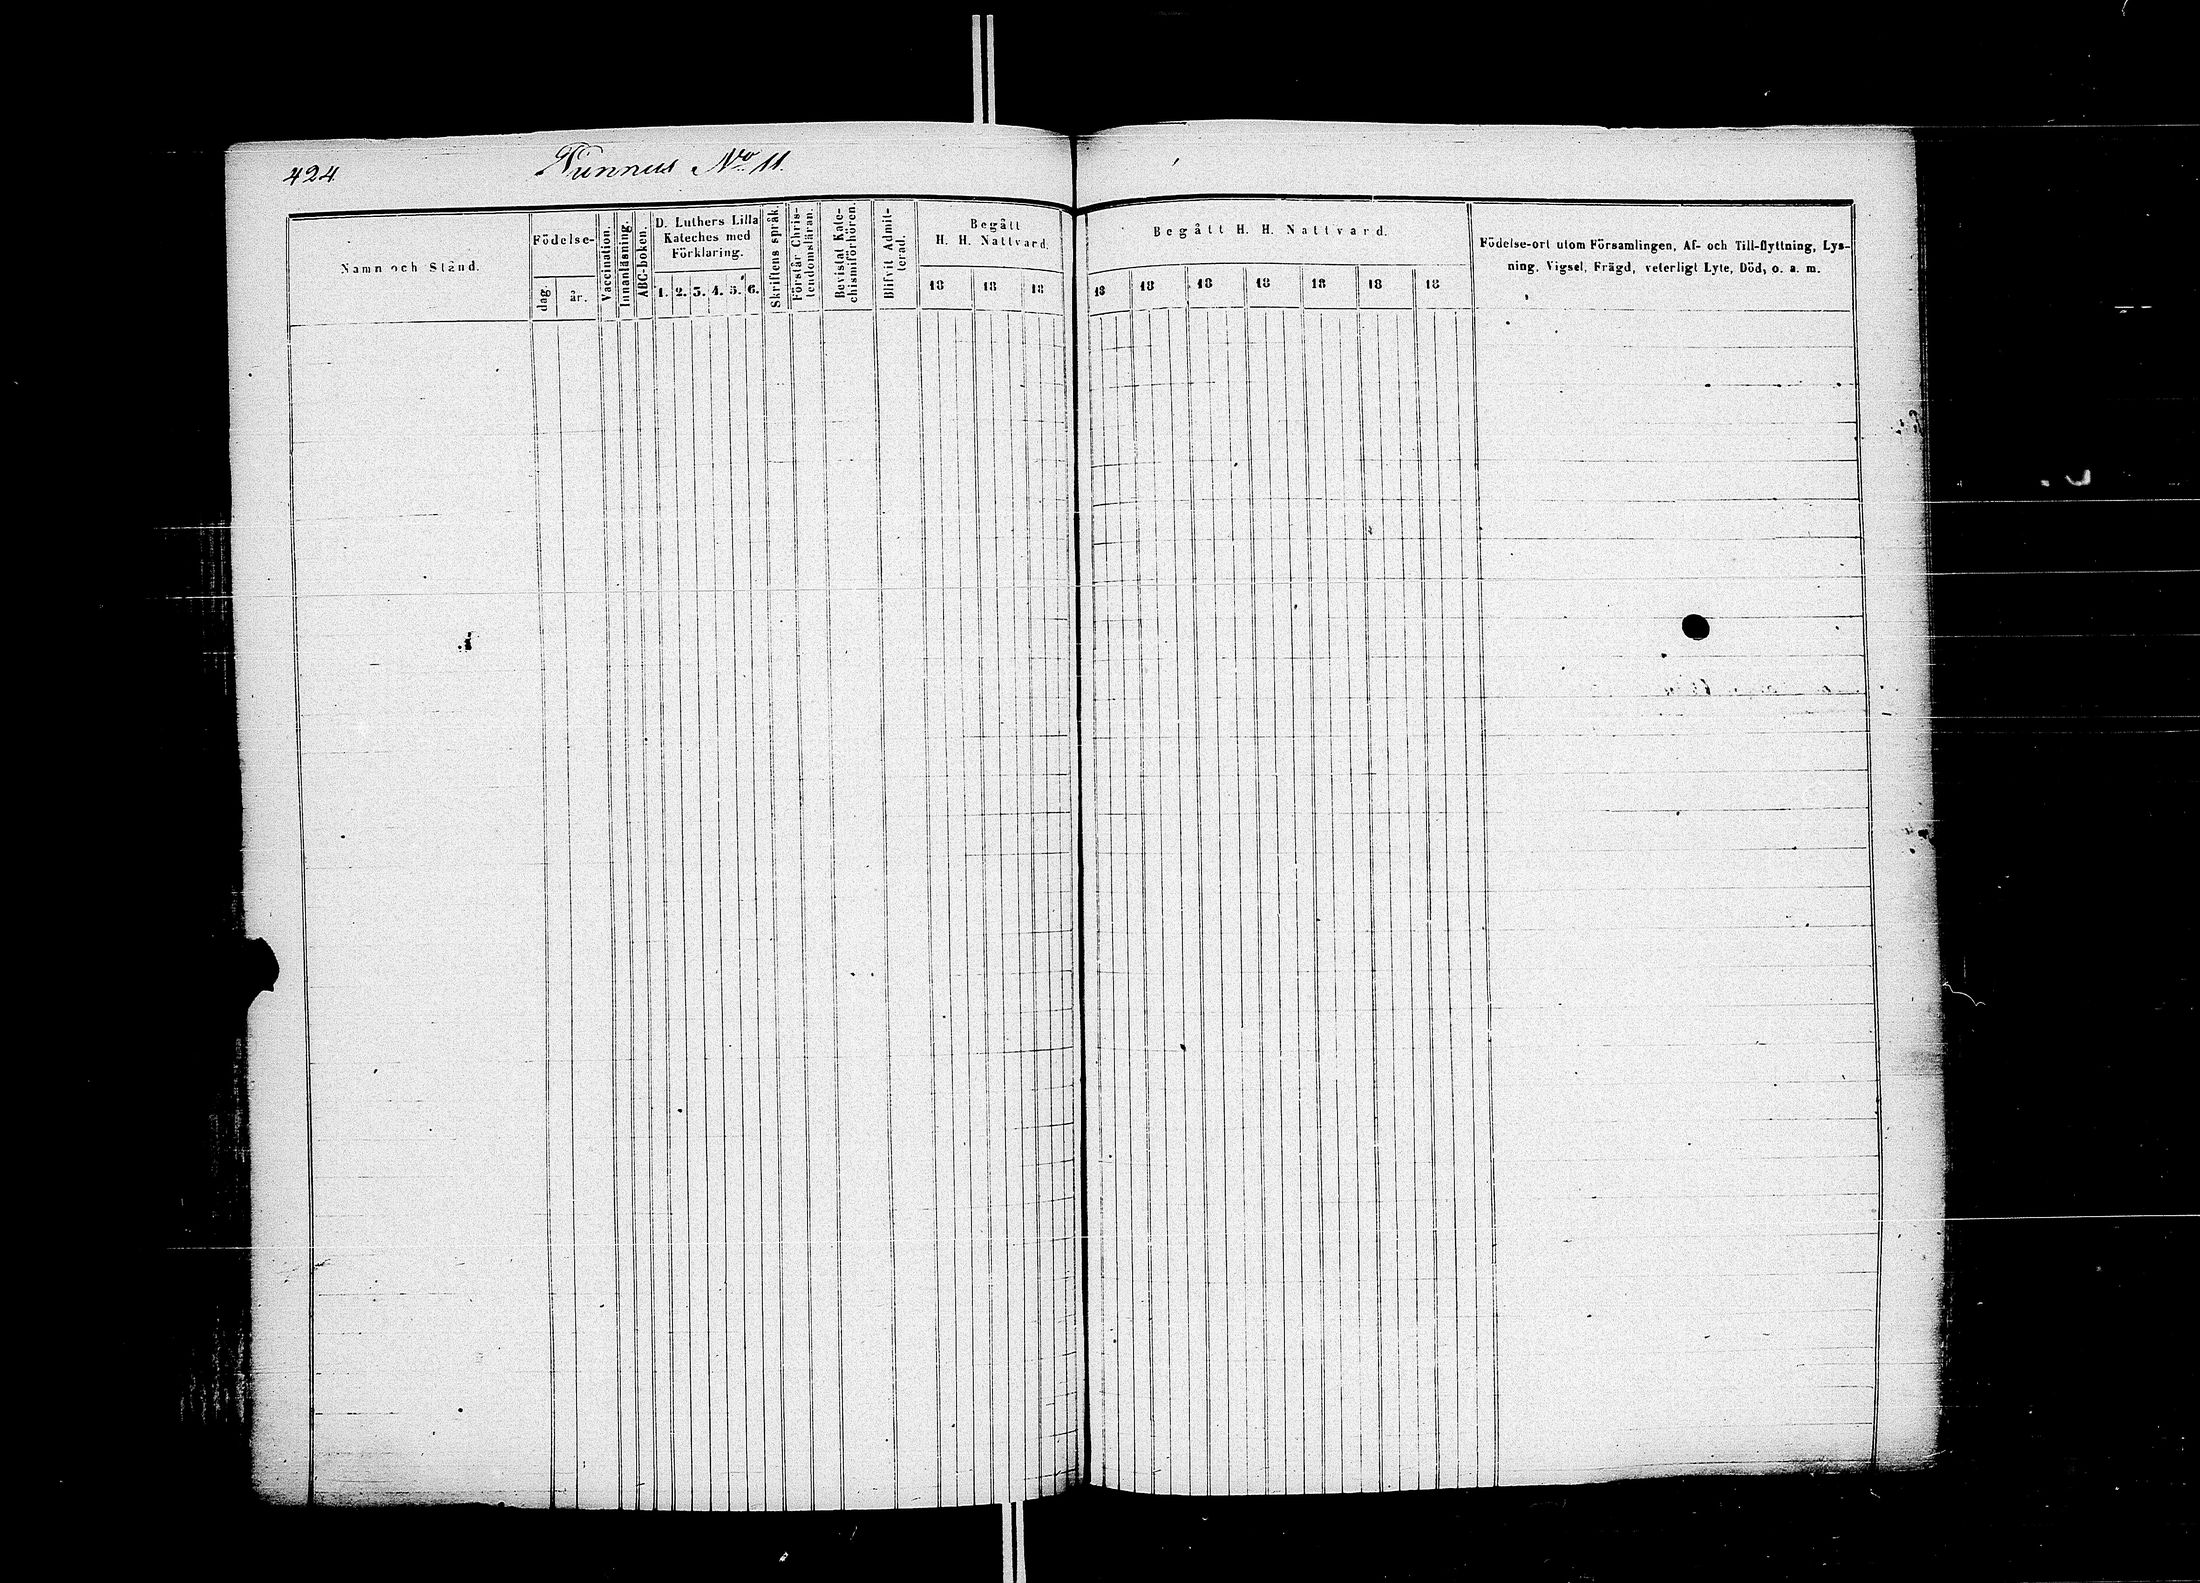 424
Nunnus No 11.
Namn och Stånd.
Födelse-
dag.
år.
Vaccination.
Innanläsning.
ABC-boken.
D. Luthers Lilla
Kateches med
Förklaring.
1. 2. 3. 4. 5. 6.
Skriftens språk.
Förstår Chris-
tendomsläran.
Bevistat Kate-
chismiförhören.
Blifvit Admit-
terad.
Begått
H. H. Nattvard.
18 18 18
Begått H. H. Nattvard.
18 18 18 18 18 18 18
Födelse-ort utom Församlingen, Af- och Till-flyttning, Lys-
ning, Vigsel, Frägd, veterligt Lyte, Död, o. s. m.